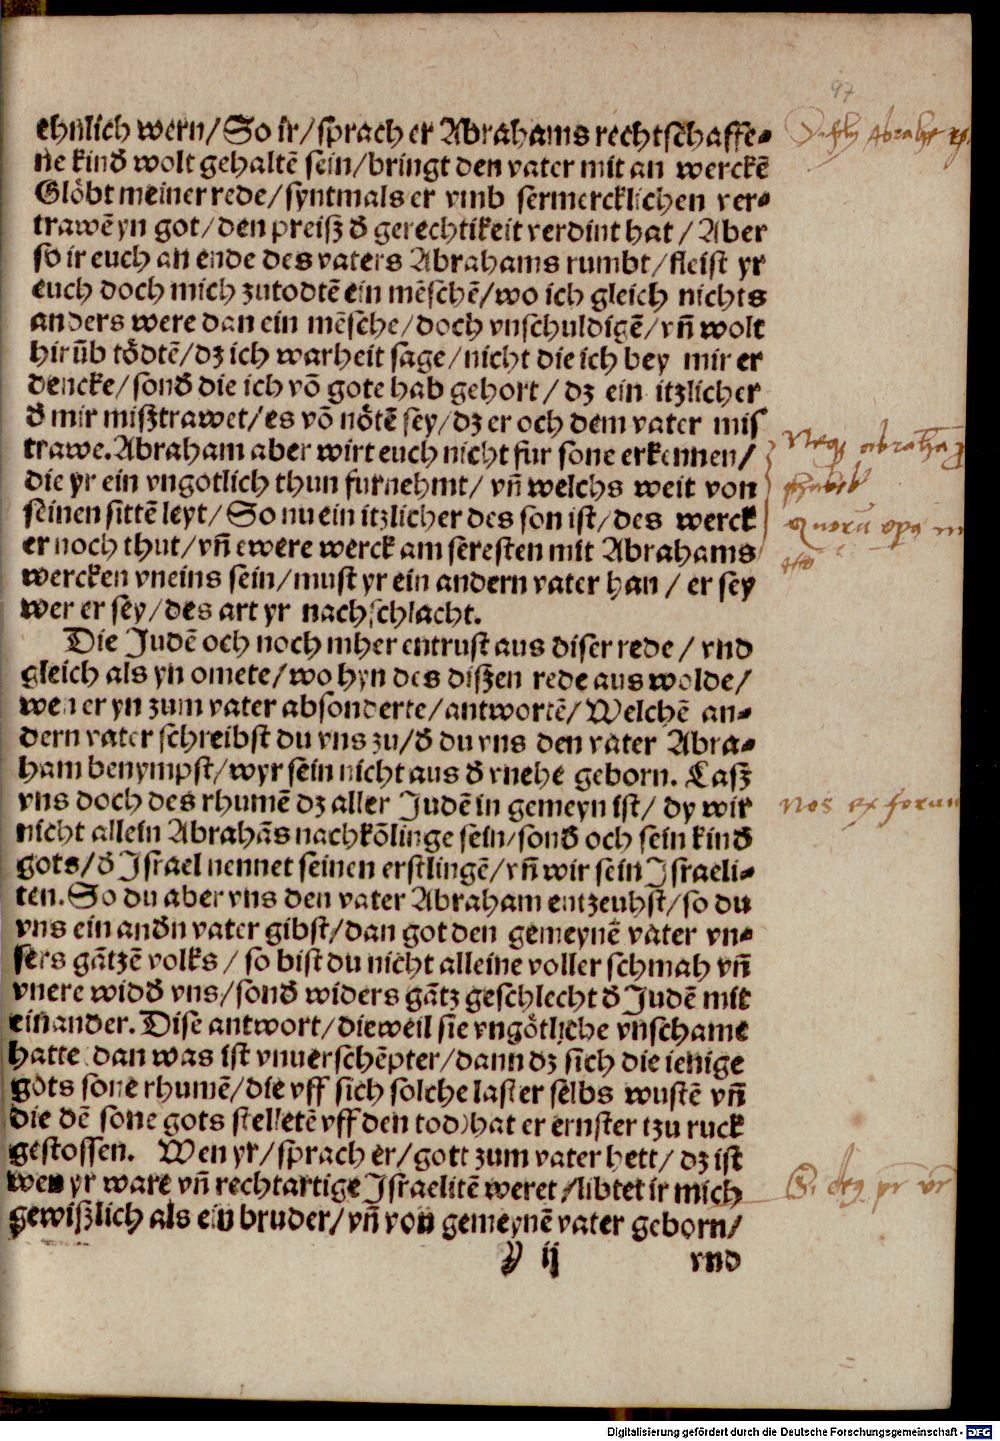 97
ehnlich wern/So ir/sprach er Abrahams rechtschaffe-
ne kind wolt gehaltē sein/bringt den vater mit an werckē
Glöbt meiner rede/syntmals er vmb sermercklichen ver-
trawē yn got/den preiß đ gerechtikeit verdint hat/Aber
so ir euch an ende des vaters Abrahams rumbt/fleist yr
euch doch mich zutodtē ein mēschē/wo ich gleich nichts
anders were dan ein mēsche/doch vnschuldigē/vn̄ wolt
hirūb tödtē/dz ich warheit sage/nicht die ich bey mir er
dencke/sonđ die ich vō gote hab gehort/dz ein itzlicher
đ mir mißtrawet/es vō nötē sey/dz er och dem vater mis
trawe.Abraham aber wirt euch nicht fur sone erkennen/
die yr ein vngotlich thun furnehmt/vn̄ welchs weit von
seinen sittē leyt/So nu ein itzlicher des son ist/des werck
er noch thut/vn̄ ewere werck am seresten mit Abrahams
wercken vneins sein/must yr ein andern vater han/er sey
wer er sey/des art yr nachschlacht.
Die Judē och noch mher entrust aus diser rede/vnd
gleich als yn omete/wo hyn des dißen rede aus wolde/
wen er yn zum vater absonderte/antwortē/Welchē an-
dern vater schreibst du vns zu/đ du vns den vater Abra-
ham benympst/wyr sein nicht aus đ vnehe geborn. Laß
vns doch des rhumē dz aller Judē in gemeyn ist/dy wir
nicht allein Abrahās nachkōlinge sein/sonđ och sein kinđ
gots/đ Israel nennet seinen erstlingē/vn̄ wir sein Israeli-
ten.So du aber vns den vater Abraham entzeuhst/so du
vns ein andn vater gibst/dan got den gemeynē vater vn-
sers gātzē volks/so bist du nicht alleine voller schmah vn̄
vnere widđ vns/sonđ widers gātz geschlecht đ Judē mit
einander.Dise antwort/dieweil sie vngötliche vnschame
hatte dan was ist vnuerschēpter/dann dz sich die ienige
gots sone rhumē/die vff sich solche laster selbs wustē vn̄
die dē sone gots stelletē vff den tod)hat er ernster tzu ruck
gestossen. Wen yr/sprach er/gott zum vater hett/dz ist
wen yr ware vn̄ rechtartige Israelitē weret/libtet ir mich
gewißlich als ein bruder/vn̄ von gemeynē vater geborn/
y ij vnd
nos ex forun
Digitalisierung gefördert durch die Deutsche Forschungsgemeinschaft - DFG